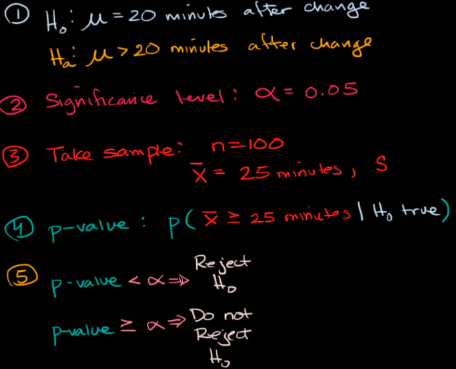 ① H₀: μ = 20 minutes after change
Hₐ: μ > 20 minutes after change
② Significance level: α = 0.05
③ Take sample: n=100
x̄ = 25 minutes, S
④ p-value: P(x̄ ≥ 25 minutes | H₀ true)
⑤ p-value < α ⇒ Reject H₀
p-value ≥ α ⇒ Do not Reject H₀